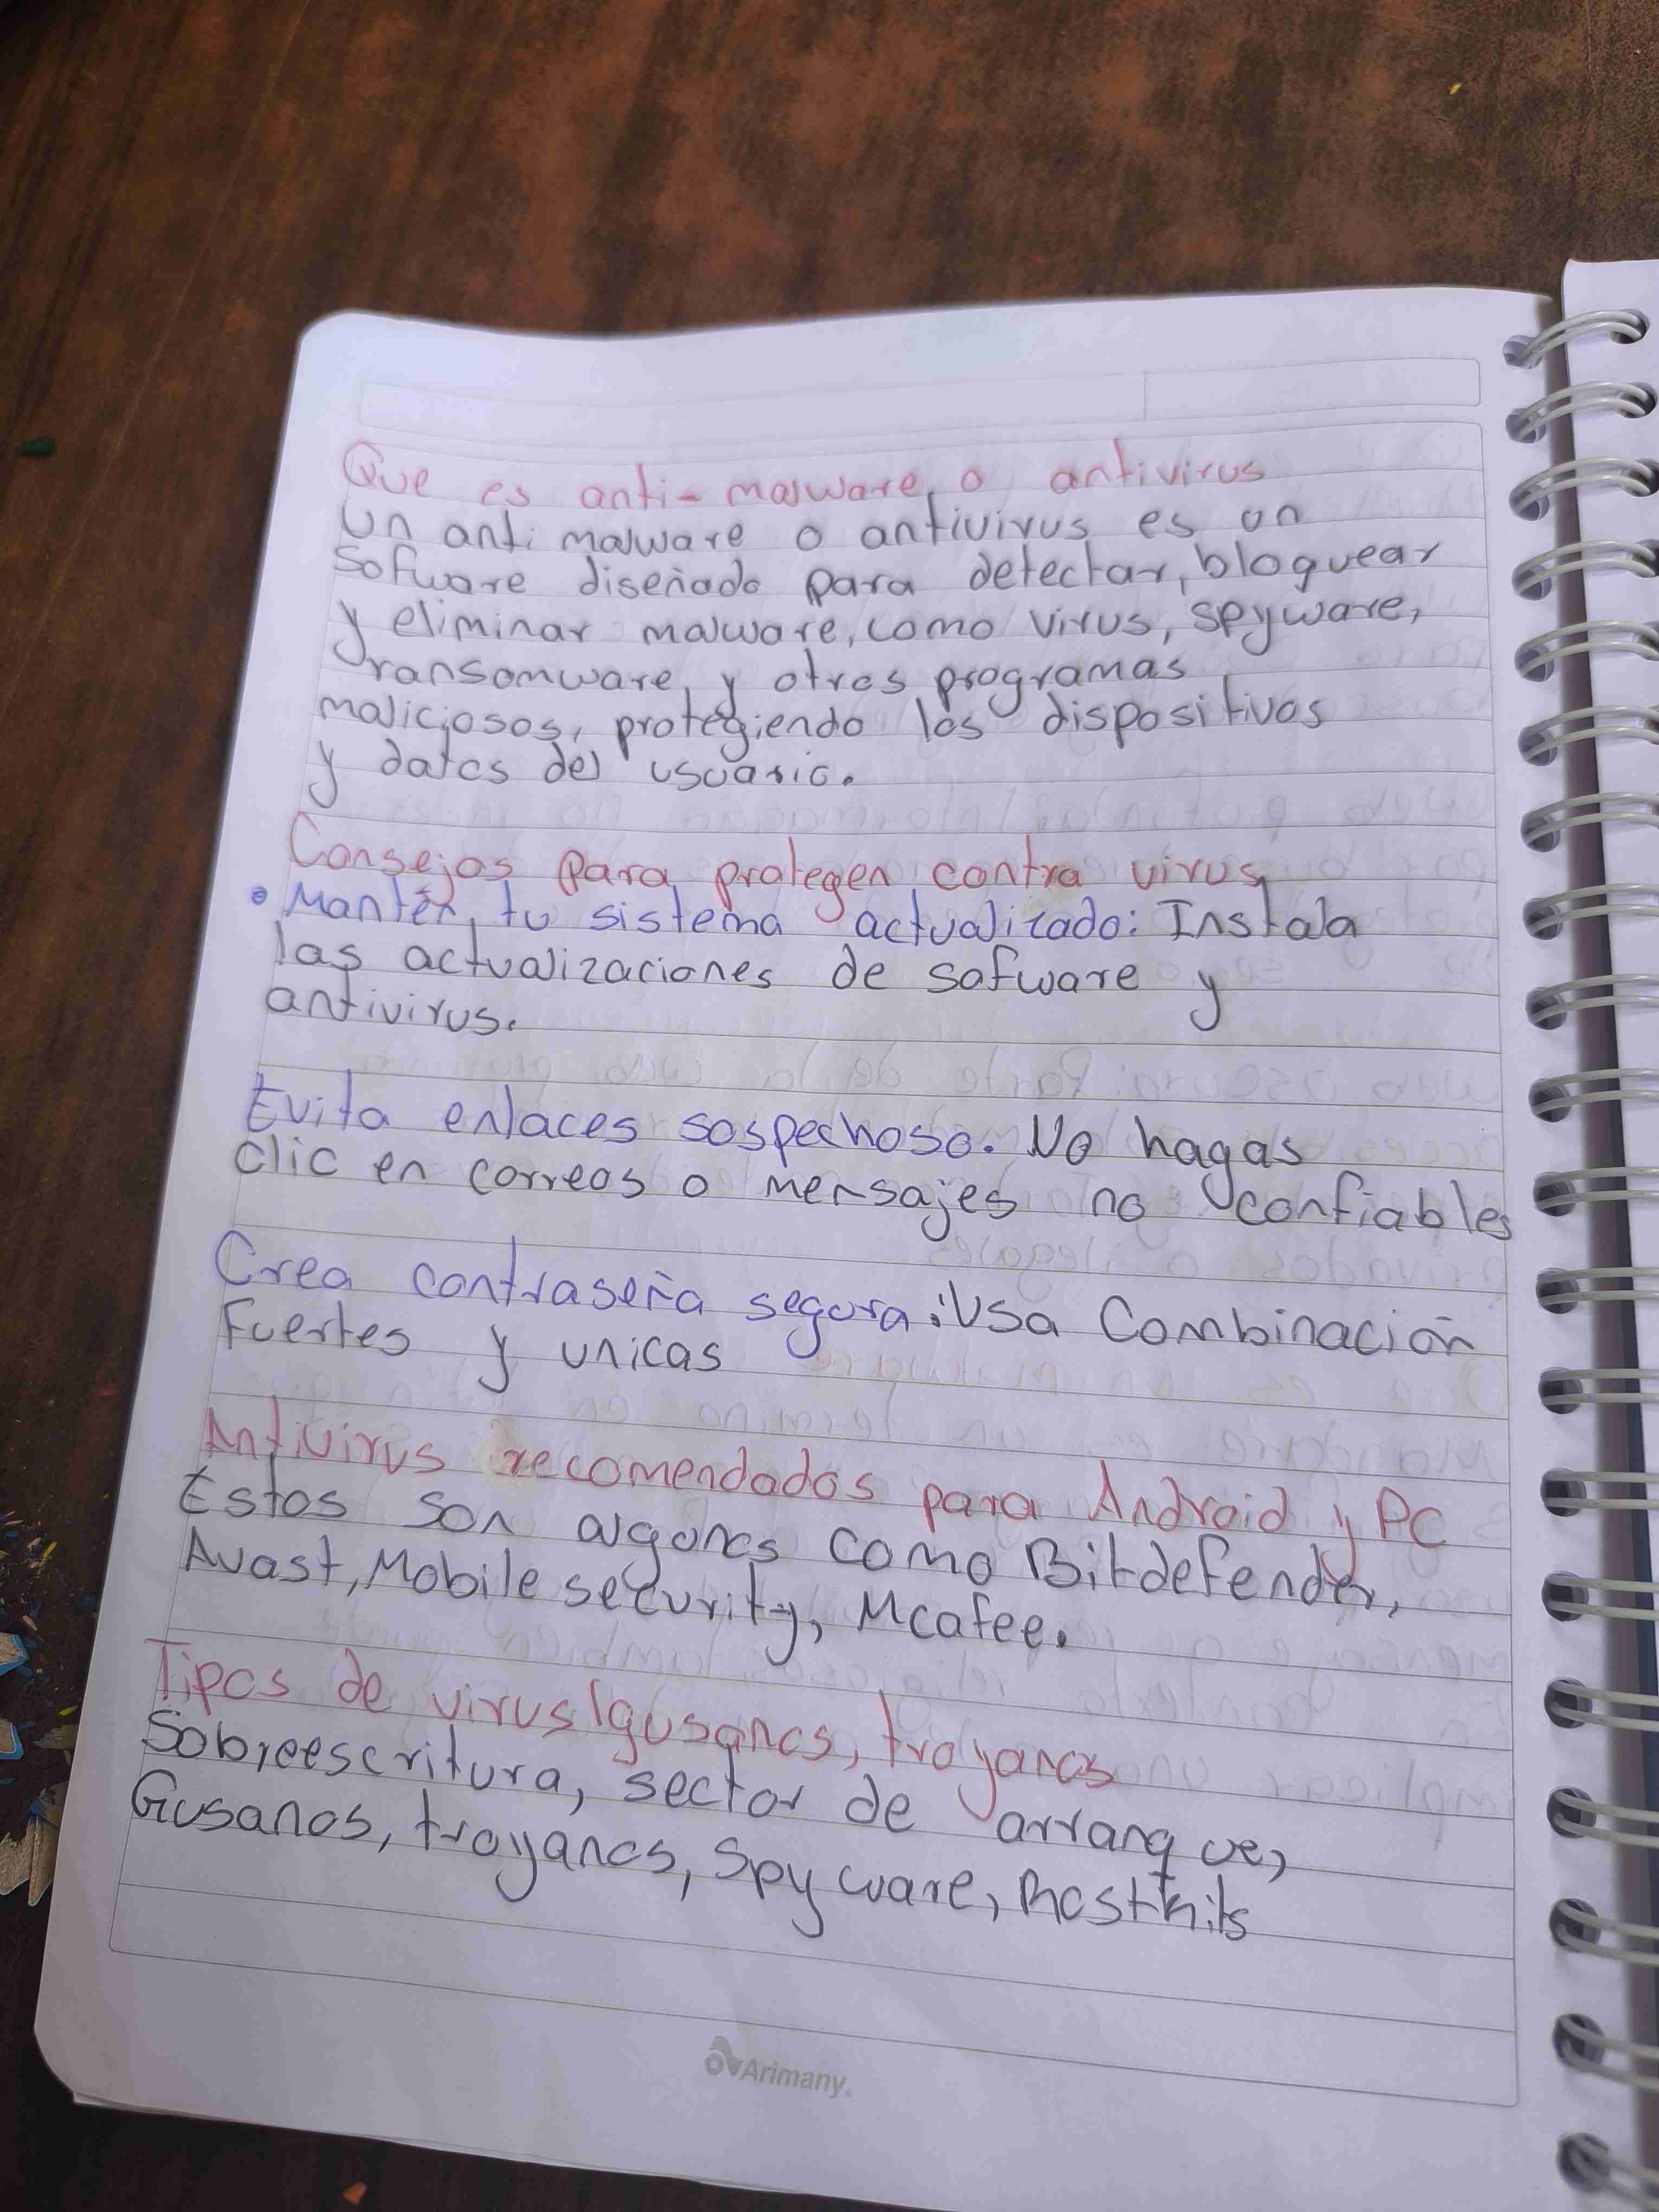 Que es anti-malware o antivirus
Un anti malware o antivirus es un
Sofware diseñado para detectar, bloquear
y eliminar malware, como virus, spyware,
ransomware, y otros programas
maliciosos, protegiendo los dispositivos
y datos del usuario.
Consejos para protegen contra virus
• Mantén tu sistema actualizado: Instala
las actualizaciones de sofware y
antivirus.
Evita enlaces sospechoso. No hagas
clic en correos o mensajes no confiables
Crea contraseña segura: Usa Combinación
Fuertes y unicas
Antivirus recomendados para Android y PC
Estos son algunos como Bitdefender,
Avast, Mobile security, Mcafee.
Tipos de virus (gusanos, troyanos
Sobreescritura, sector de arranque,
Gusanos, troyanos, Spyware, Rostkits
Arimany